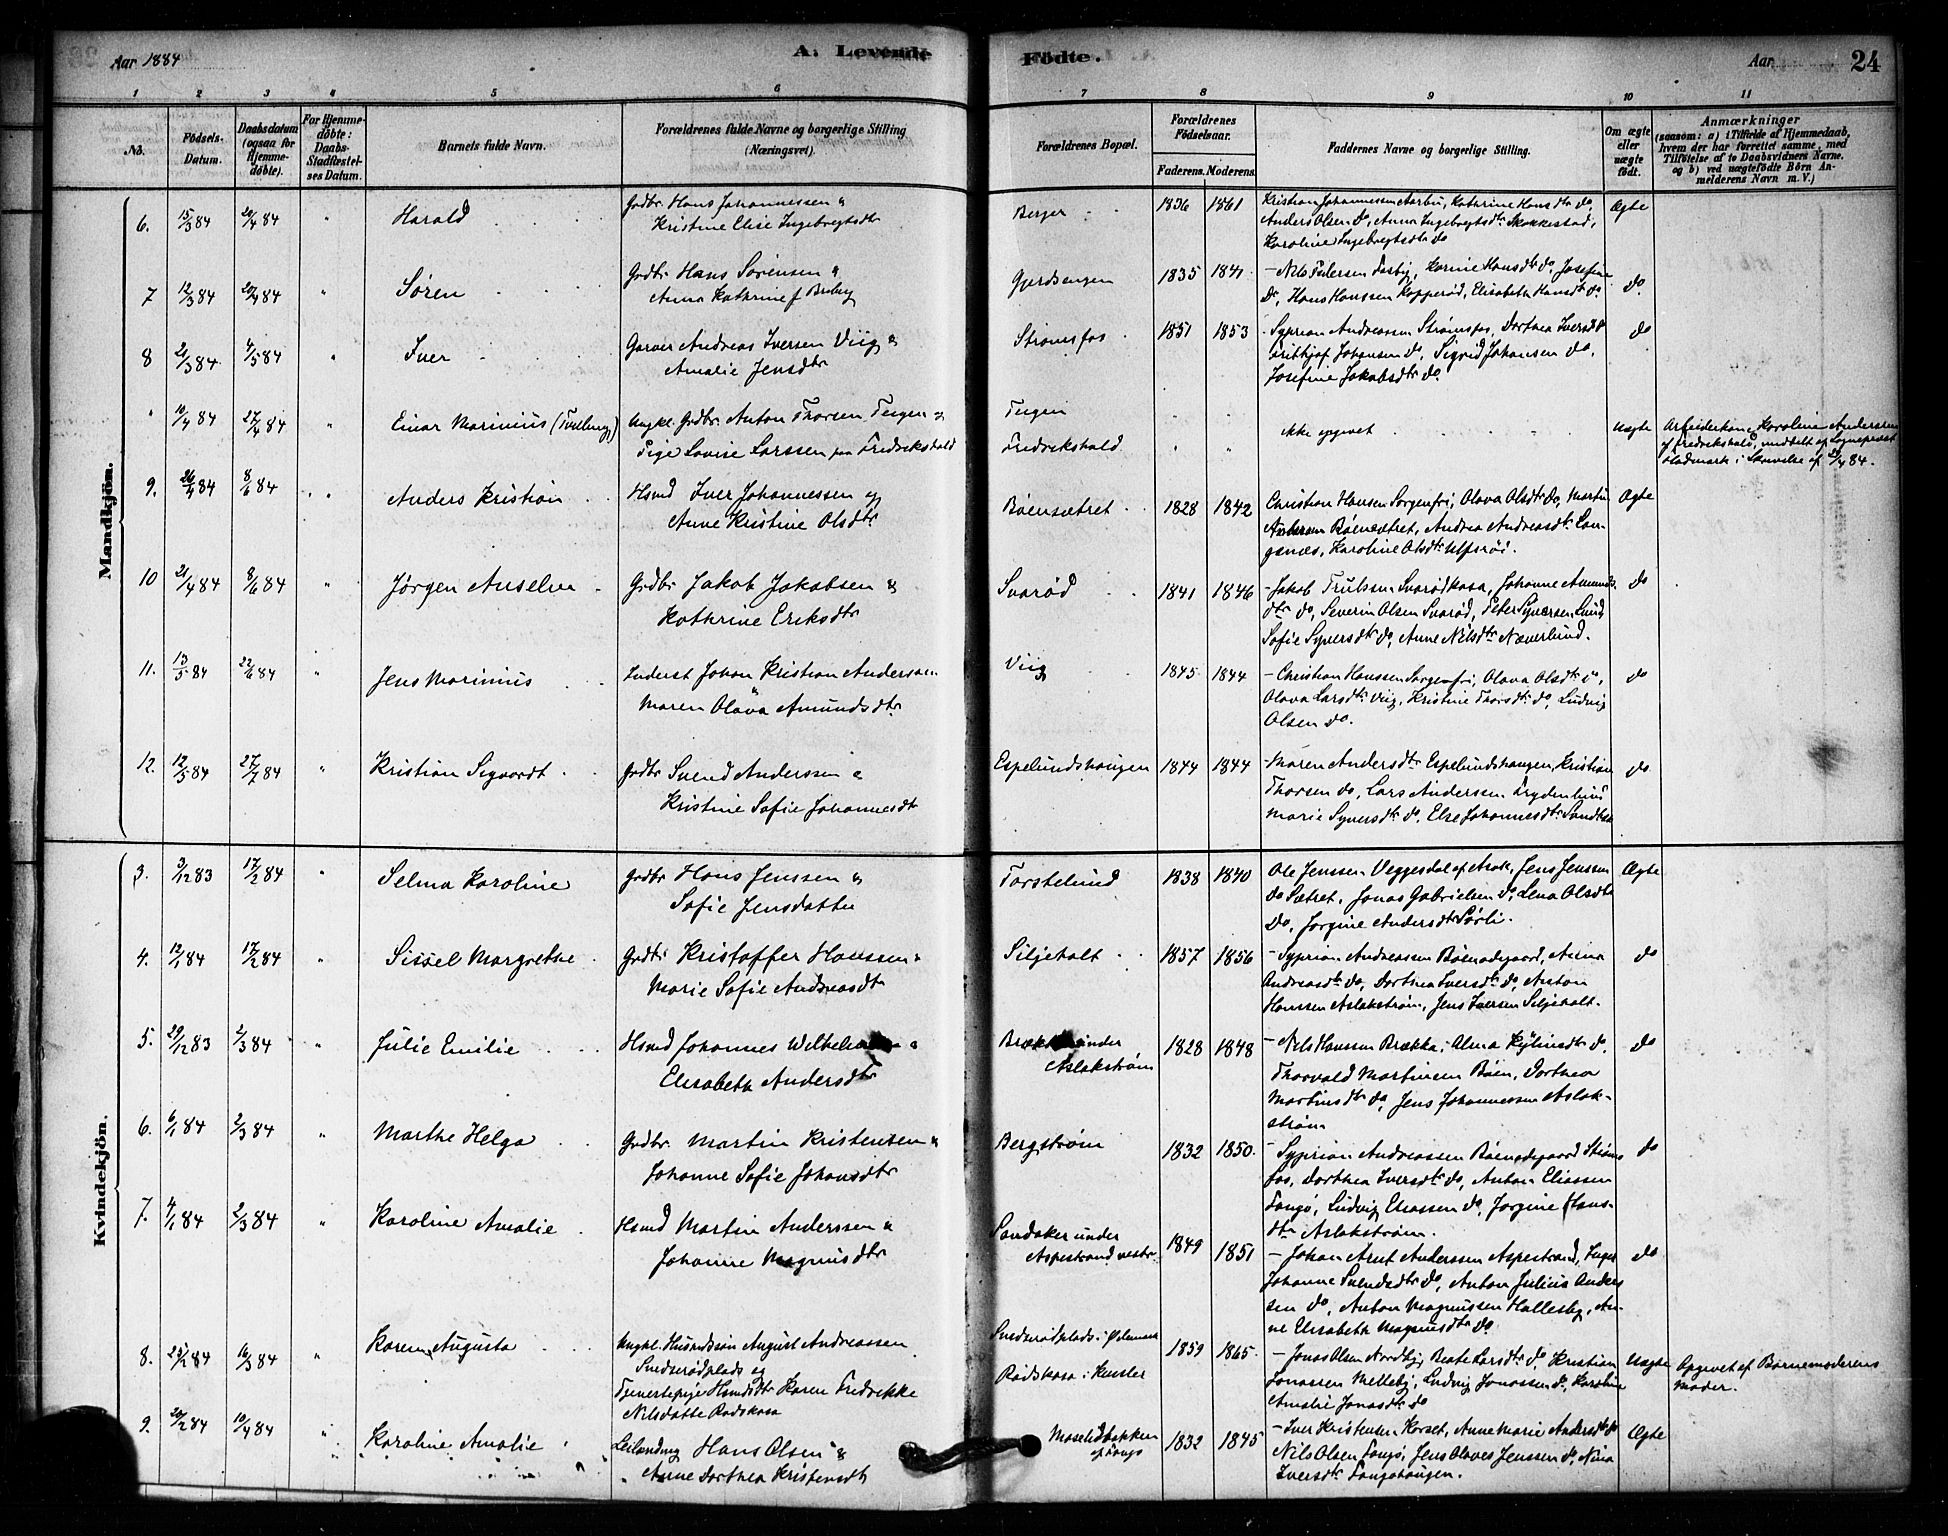 Aar 1884
A. Levende
Födte.
Aar
24
1 2 3 4 5 6 7 8 9 10 11
No.
Födsels-Datum.
Daabsdatum (ogsaa for Hjemmedöbte).
For Hjemmedöbte: Daabs-Stadfæstelses Datum.
Barnets fulde Navn.
Forældrenes fulde Navne og borgerlige Stilling (Næringsvei).
Forældrenes Bopæl.
Forældrenes Födselsaar.
Faderens. Moderens.
Faddernes Navne og borgerlige Stilling.
Om ægte eller uægte födt.
Anmærkninger
(saasom: a) i Tilfælde af Hjemmedaab, hvem der har forrettet samme, med Tilföielse af to Daabsvidners Navne. og b) ved uægtefödte Börn Anmelderens Navn m. V.)
Mandkjön.
6. 15/3 84 20/4 84 " Harald
Grdbr. Hans Johannessen &
Kristine Elise Ingebregtsdtr
Berger 1836 1861
Kristian Johannessen Aarbu, Kathrine Hansdtr do,
Anders Olsen do, Anna Ingebregtsdtr Skokkestad,
Karoline Ingebregtsdtr do
Ægte
7 12/3 84 20/4 84 " Søren
Grdbr. Hans Sørensen &
Anna Kathrine f. Buby
Gjerdsengen 1835 1841
- Nils Pedersen Fosby, Karine Hansdtr do, Josefine
do, Hans Hanssen Kopperød, Elisabeth Hansdtr do
do.
8 21/3 84 4/5 84 " Iver
Garver Andreas Iversen Viig &
Amalie Jensdtr
Strømsfos 1851 1853
- Syprian Andreassen Strømsfos, Dorthea Iversdtr
Frithjof Johansen do, Sigrid Johansen do,
Josefine Jakobsdtr do.
do
" 10/4 84 27/4 84 " Einar Marinius (Tvilling)
Ungkl. Grdbr. Anton Thorsen Tegen &
Pige Lovise Larssen fra Fredrikshald
Tegen
Fredrikshald
ikke opgivet
Uægte
Arbeiderkone Karoline Andersen
af Fredrikshald, meddelt af Sognepræst
i Skrivelse af 24/4 84.
9. 26/4 84 8/6 84 " Anders Kristian
Hsmd Iver Johannessen og
Anne Kristine Olsdtr
Bøensætret 1828 1842
Christian Hansen Sorgenfri, Olava Olsdtr do, Martin
Andersen Bøensætret, Andrea Andreasdtr Lan-
genæs, Karoline Olsdtr Ulfsrøi.
Ægte
10 21/4 84 8/6 84 " Jørgen Anselm
Grdbr Jakob Jakobsen &
Kathrine Eriksdtr
Svarød 1841 1846
- Jakob Trulssen Svarødkasa, Johanne Amunds-
dtr do, Severin Olsen Svarød, Peter Syversen Lund
Sofie Syversdtr do, Anne Nilsdtr Næverlund.
do
11. 13/5 84 22/6 84 " Jens Marinius
Inderst Johan Kristian Andersen
Maren Olava Amundsdtr
Viig 1845 1844
- Christian Hanssen Sorgenfri, Olava Olsdtr do,
Olava Larsdtr Viig, Kristine Thorsdtr do, Ludvig
Olsen do.
do
12. 12/5 84 27/7 84 " Kristian Sigvardt
Grdbr Svend Anderssen &
Kristine Sofie Johannesdtr
Espelundshaugen 1844 1844
- Maren Andersdtr Espelundshaugen, Kristian
Thorsen do, Lars Andersen Prydenlund
Marie Syversdtr do, Else Johannesdtr Sandbæk
do
Kvindekjön.
3. 9/12 83 17/2 84 " Selma Karoline
Grdbr Hans Jenssen &
Sofie Jensdatter
Torstelund 1838 1840
Ole Jenssen Veggesdal af Arak, Jens Jenssen
do Sætret, Jonas Gabrielsen do, Lena Olsdtr
do, Jorgine Andersdtr Sørli.
Ægte
4. 12/1 84 17/2 84 " Sissel Margrethe
Grdbr Kristoffer Hanssen &
Marie Sofie Andreasdtr
Siljeholt 1857 1856
- Syprian Andreassen Bøenødegaard, Anna
Andreasdtr do, Dorthea Iversdtr do, Anton
Hanssen Aslakstrøm, Jens Iversen Siljeholt.
do
5. 29/12 83 2/3 84 " Julie Emilie
Hsmd Johannes &
Elisabeth Andersdtr
under
Aslakstrøm 1828 1848
- Nils Hanssen Brækka, Alma do,
Thorvald Martinsen Bøen, Dorthea
Martinsdtr do, Jens Johannessen Aslak-
strøm
do
6. 6/1 84 2/3 84 " Marthe Helga
Grdbr. Martin Kristensen &
Johanne Sofie Johansdtr
Bergstrøm 1832 1850.
- Syprian Andreassen Bøenødegaard Strøms-
fos, Dorthea Iversdtr do, Anton Eliassen
Langø, Ludvig Eliassen do, Jorgine Hans-
dtr Aslakstrøm.
do
7. 4/1 84 2/3 84 " Karoline Amalie
Hsmd Martin Anderssen &
Johanne Magnusdtr
Sandaker under
Aspestrand vestre 1849 1851
- Johan Arnt Anderssen Aspestrand, Inger
Johanne Svendsdtr do, Anton Julius Ander-
sen do, Anton Magnussen Hallesby, An-
ne Elisabeth Magnusdtr do
do
8. 25/2 84 16/3 84 " Karen Augusta
Ungkl. Husmdssøn August Andreassen
Snesrødplads og
Tjenestepige Hsmdsdtr Karen Fredrikke
Nilsdatter Rødskasa
Snesrødplads i Ødemark
Rødskasa i 1859 1865.
- Jonas Olsen Nordby, Beate Larsdtr do, Kristian
Jonassen Melleby, Ludvig Jonassen do, Karoline
Amalie Jonasdtr do
Uægte
Opgivet af Barnemoderens
Moder.
9. 20/2 84 10/4 84 " Karoline Amalie
Leilænding Hans Olsen &
Anne Dorthea Kristensdtr
Moselidbakken
1832 1845
- Iver Kristensen Korset, Anne Marie Andersdtr do
Nils Olsen Langø, Jens Olaves Jenssen do, Nina
Iversdtr Langøhaugen.
Ægte